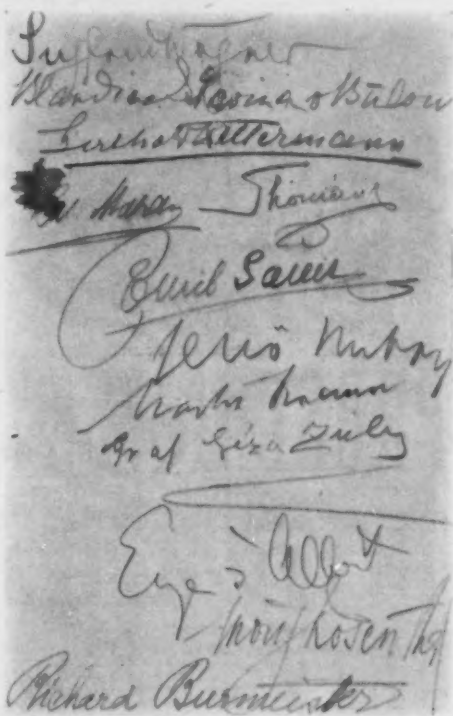 Siegfried Wagner
Blandine Gravina v Bülow
Berthold Kellermann
Thomán
Emil Sauer
Jenő Hubay
Martin Krause
Graf Géza Zichy
Eugen d'Albert
Moriz Rosenthal
Richard Burmeister